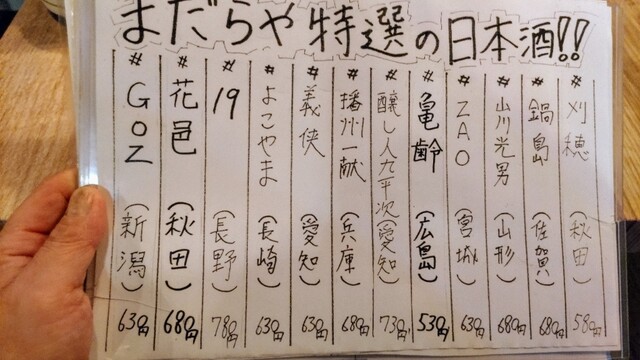 まだらや特選の日本酒!!
# 刈穂 (秋田) 580円
# 鍋島 (佐賀) 680円
# 山川光男 (山形) 680円
# ZAO (宮城) 630円
# 亀齢 (広島) 530円
# 醸し人九平次 (愛知) 730円
# 播州一献 (兵庫) 680円
# 義侠 (愛知) 630円
# よこやま (長崎) 630円
# 19 (長野) 780円
# 花邑 (秋田) 680円
# GOZ (新潟) 630円